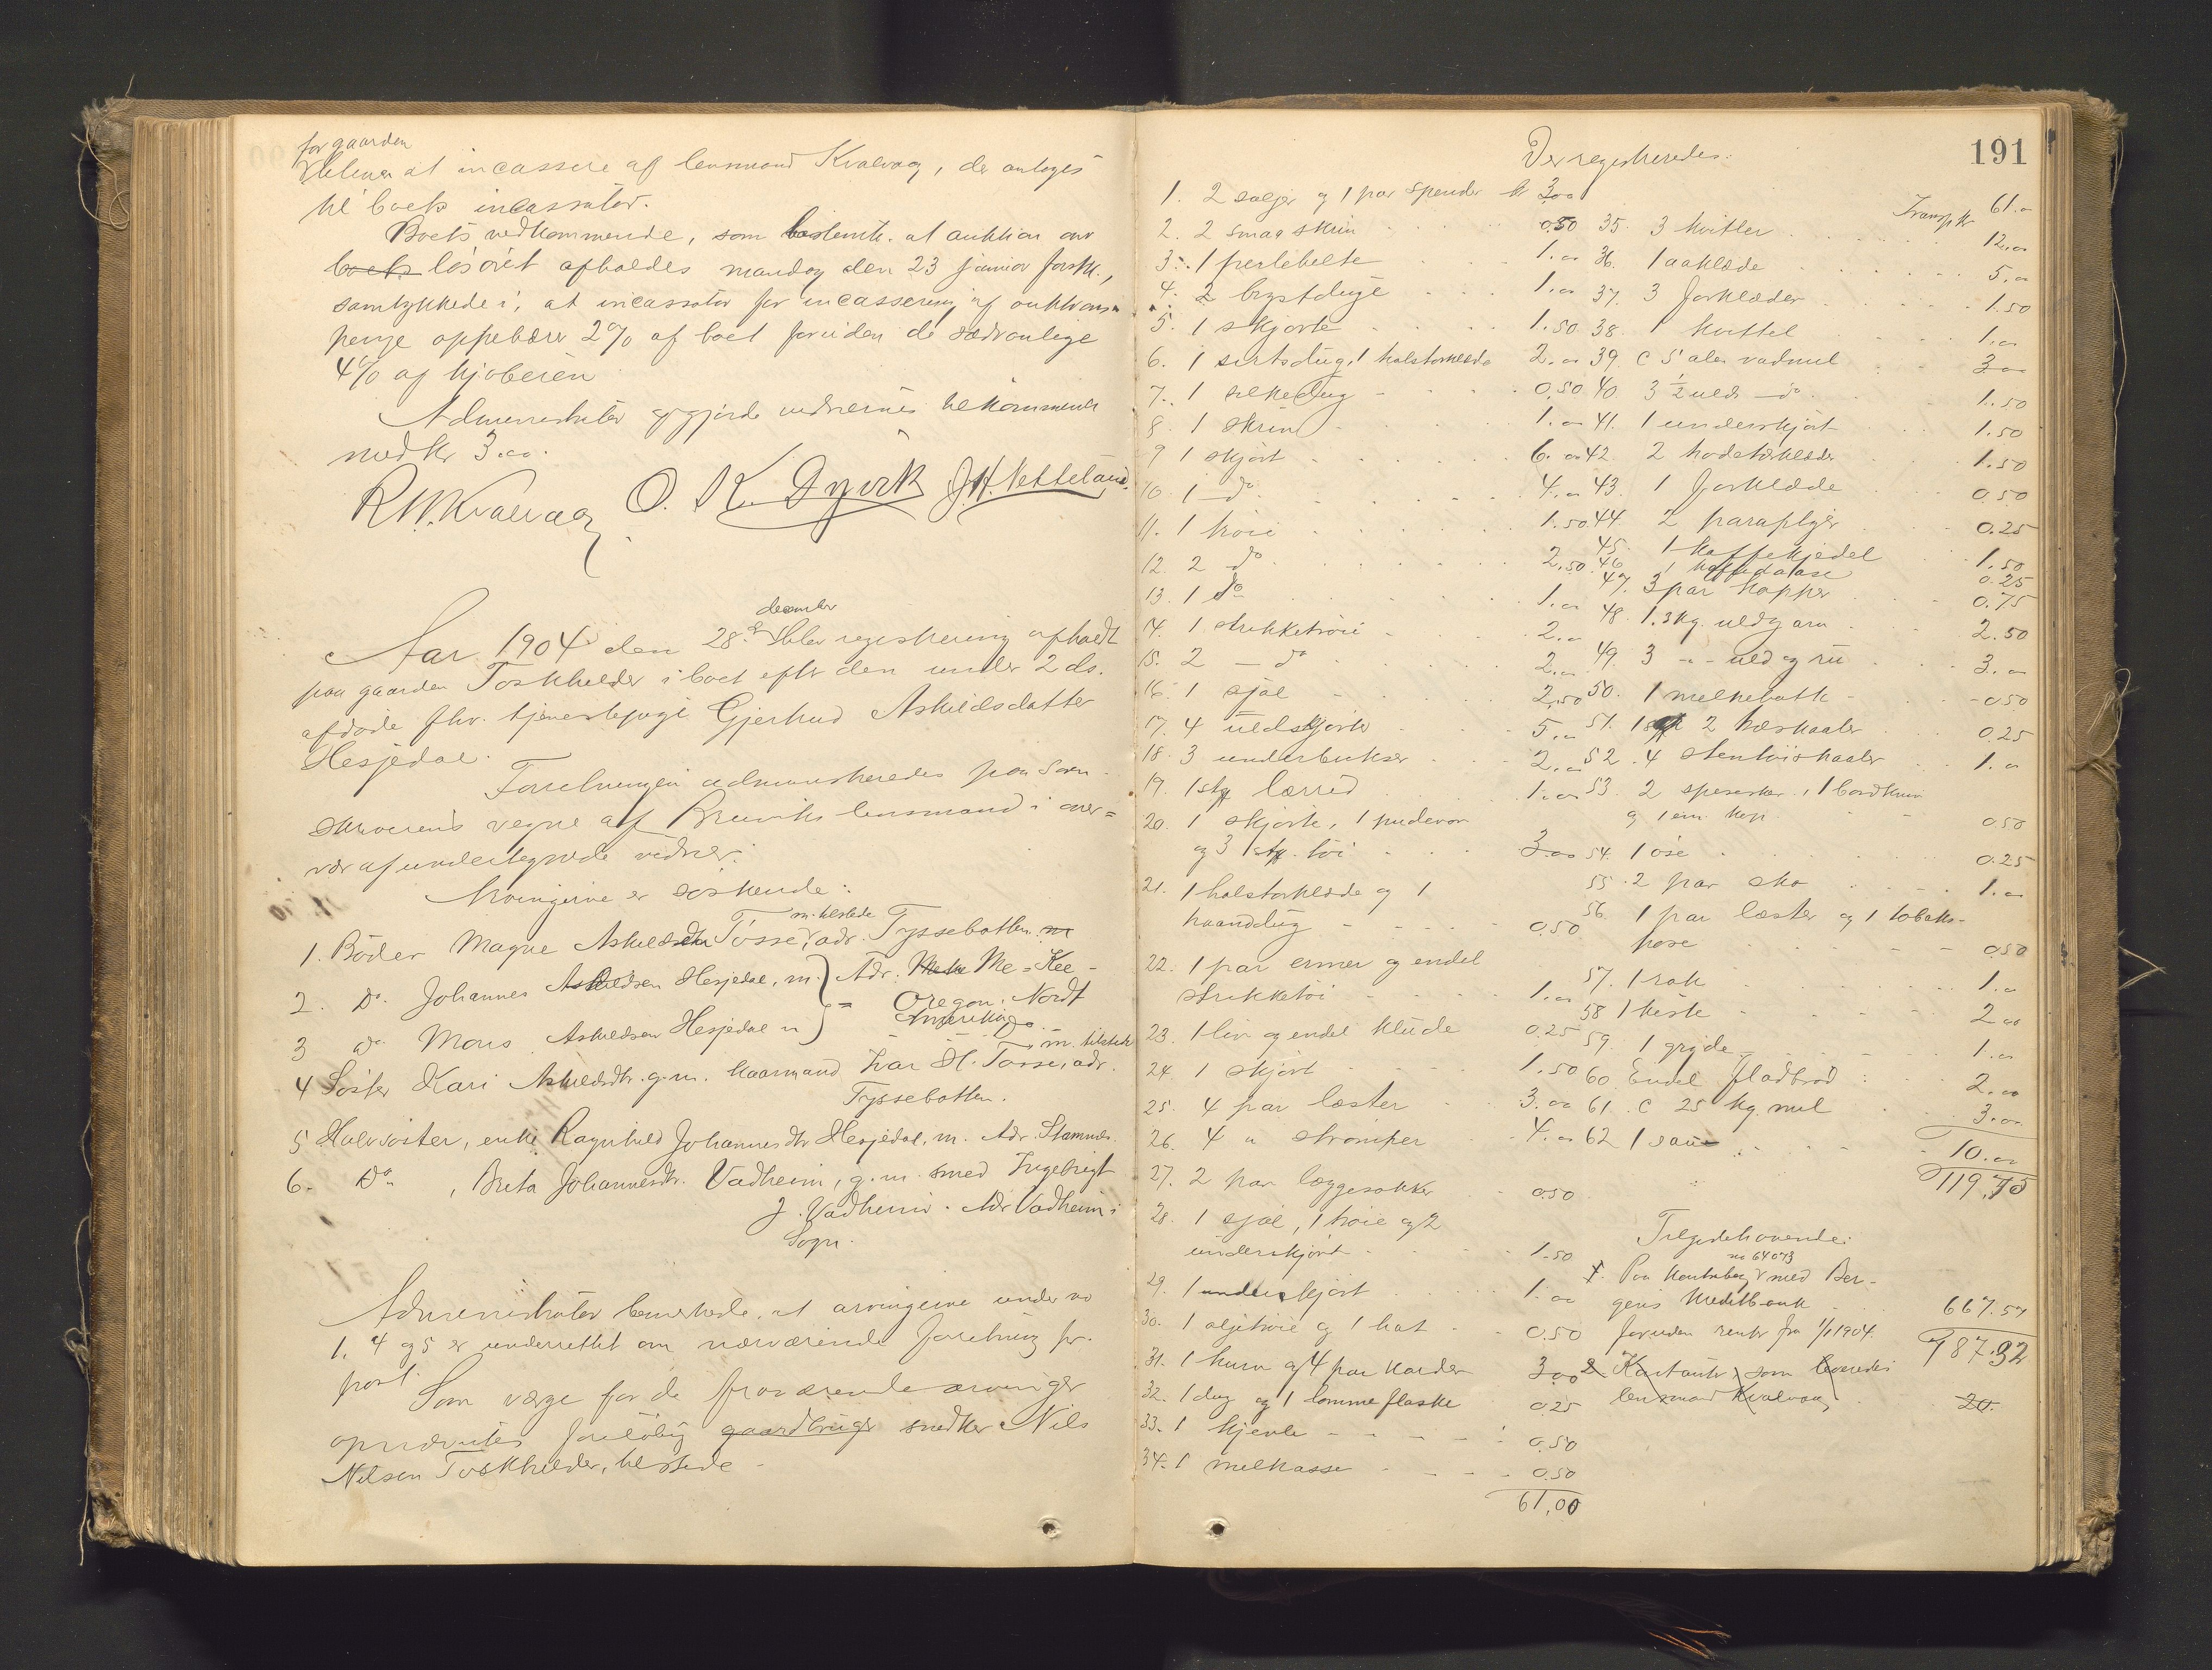 for gaarden
at incassere af lensmand Kvalvaag, der antoges
til boets incassator.
Boets vedkommende, som bestemte at auktion over
boets løsøret afholdes mandag den 23 januar førstk.,
samtykkede i, at incassator for incassering af auktions=
penge oppebærer 2% af boet foruden de sædvanlige
4% af kjøberen
Administrator godgjorde vidnernes tilkommende
med kr 3.00.
R. W. Kvalvaag O. K. Dyvik J. H. Vetteland.
december
Aar 1904 den 28de blev registrering afholdt
paa gaarden Toskhelder i boet efter den under 2 ds.
afdøde fhv. tjenestepige Gjertrud Askildsdatter
Hesjedal.
Forretningen administreredes paa Soren-
skriverens vegne af Bruviks lensmand i over=
vær af undertegnede vidner.
Arvingerne er søskende:
m. tilstede
1. Bröder Magne Askildsen Tösse, adr. Tyssebotten. m
2. Do. Johannes Askildsen Hesjedal, m. } Adr. Me=Kee-
= Oregon, Nordt
Amerika
3 do Mons Askildsen Hesjedal m
m. tilstede
4 Söster Kari Askildsdtr. g.m. kaarmand Ivar H. Tösse, adr.
Tyssebotten.
5 Halvsöster, enke Ragnhild Johannesdtr Hesjedal, m. Adr. Stamnes.
6. Do , Brita Johannesdtr. Vadheim, g.m. smed Ingebrigt
J. Vadheim. Adr Vadheim i
Sogn.
Administrator bemerkede, at arvingerne under no
1, 4 og 5 er underrettet om nærværende forretning pr.
post.
Som verge for de fraværende arvinger
opnævntes foreløbig gaardbruger snedker Nils
Nilsen Toskhelder, tilstede -
191
Der registreredes:
1. 2 søljer og 1 par spender kr 3.00
2. 2 smaa skrin 0.50
3. 1 perlebelte 1.00
4. 2 brystduge 1.00
5. 1 skjorte 1.50
6. 1 sirtsdug, 1 halstørklæde 2.00
7. 1 silkedug 0.50
8. 1 skrin 1.00
9 1 skjört 6.00
10. 1 do 4.00
11. 1 tröie 1.50
12. 2 do 2.50
13. 1 do 1.00
14. 1 strikketröie 2.00
15. 2 - do 2.00
16. 1 sjal 2.50
17. 4 uldskjorte 5.00
18. 3 underbukser 2.00
19. 1 stk lærred 1.00
20. 1 skjorte, 1 pudevor
og 3 stk. töi 3.00
21. 1 halstørklæde og 1
haanddug 0.50
22. 1 par ermer og endel
strikketöi 1.00
23. 1 liv og endel klude 0.25
24. 1 skjört 1.50
25. 4 par læster 3.00
26. 4 " strömper 4.00
27. 2 par læggesokker 0.50
28. 1 sjal, 1 tröie og 2
underskjört 1.50
29. 1 underskjört 1.00
30. 1 oljetröie og 1 hat 0.50
31. 1 kurv og 4 par karder 3.00
32. 1 dug og 1 lommeflaske 0.25
33. 1 kjevle 0.50
34. 1 melkasse 0.50
61.00
Transp. kr 61.00
35. 3 kvitler 12.00
36. 1 aaklæde 5.00
37. 3 forklæder 1.50
38. 1 kvittel 1.00
39. C 5 alen vadmel 3.00
40. 3 1/2 ulds - do 1.50
41. 1 underskjört 1.50
42. 2 hodetørklæder 1.50
43. 1 forklæde 0.50
44. 2 paraplyer 0.25
45. 1 kaffekjedel 1.50
46. 1 kaffedaase 0.25
47. 3 par kopper 0.75
48. 1.3 kg. uldgarn 2.50
49. 3 -"- uld og ru 3.00
50. 1 melkebøtte 0.50
51. 2 træskaaler 0.25
52. 4 stentöiskaaler 1.00
53. 2 speseskeer, 1 bordkniv
og 1 em. kop 0.50
54. 1 öse 0.25
55. 2 par sko 1.00
56. 1 par læster og 1 tobaks-
pose 0.50
57. 1 rok 1.00
58 1 kiste 2.00
59. 1 gryde 1.00
60. Endel fladbröd 2.00
61. C 25 kg. mel 3.00
62 1 sau 10.00
119.75
Tilgodehavende:
no 64073
1. Paa kontrabog med Ber-
gens kreditbank 667.57
foruden renter fra 1/1 1904.
787.32
2 Kontanter, som leveredes
lensmand Kvalvaag 20.